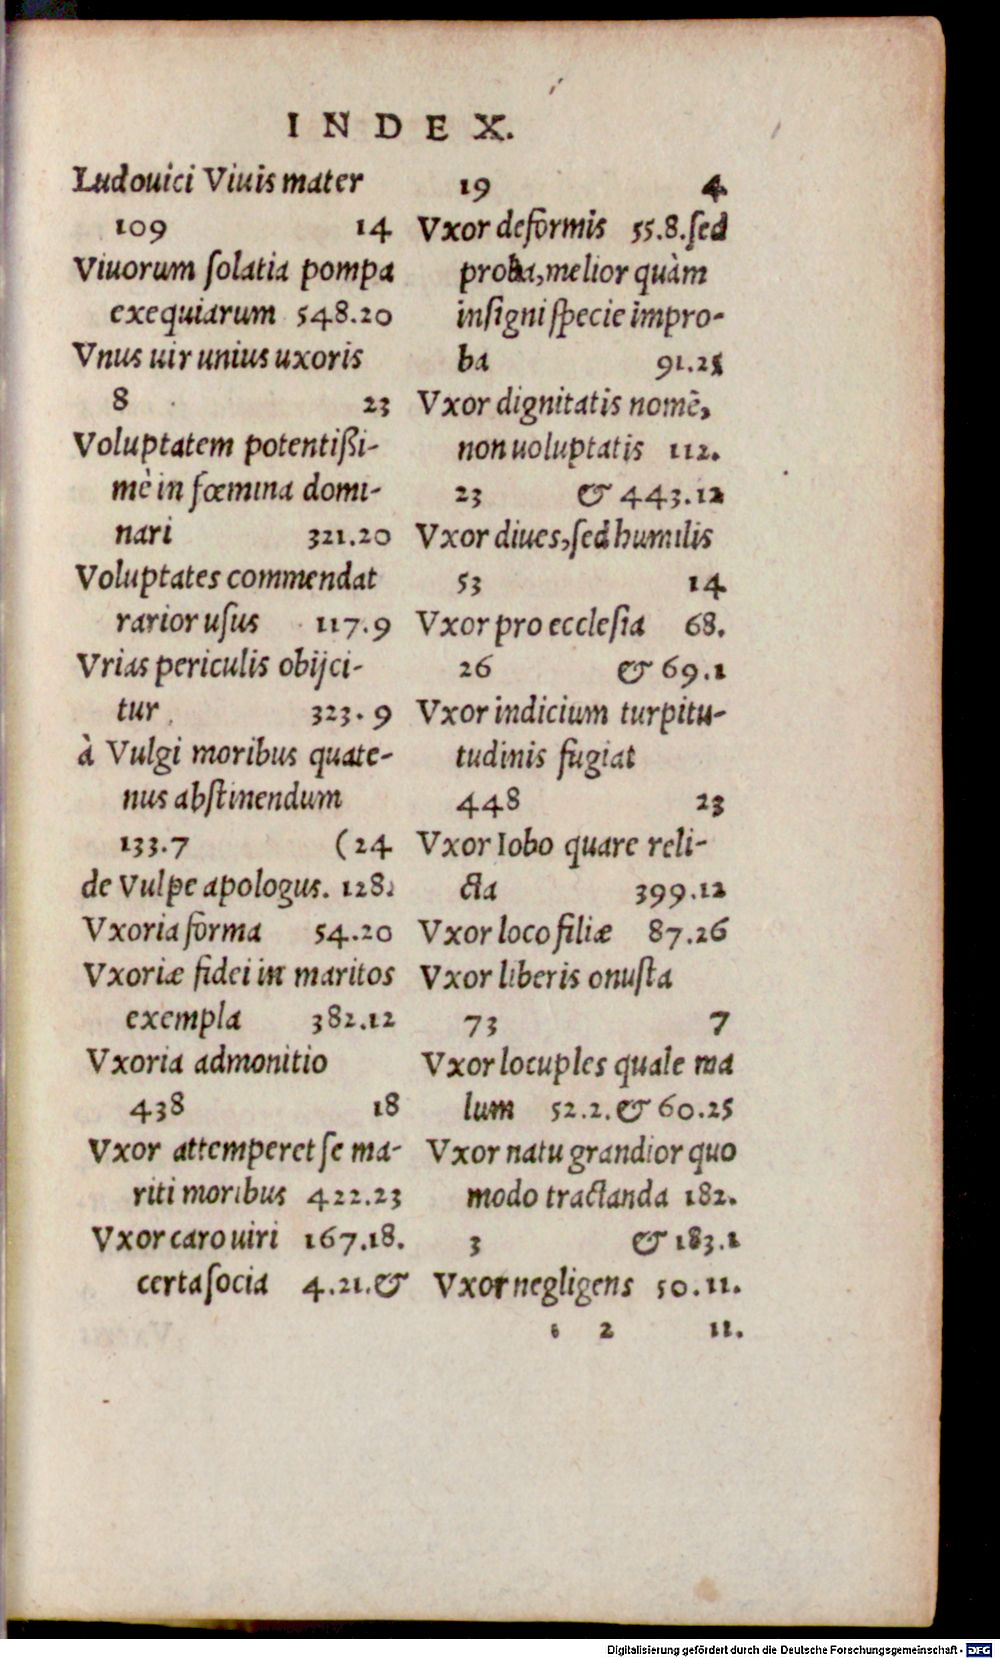 INDEX.
Ludouici Viuis mater
109 14
Viuorum ſolatia pompa
exequiarum 548.20
Vnus uir unius uxoris
8 23
Voluptatem potentißi-
mè in fœmina domi-
nari 321.20
Voluptates commendat
rarior uſus 117.9
Vrias periculis obijci-
tur 323.9
à Vulgi moribus quate-
nus abſtinendum
133.7 (24
de Vulpe apologus. 128.
Vxoria forma 54.20
Vxoriæ fidei in maritos
exempla 382.12
Vxoria admonitio
438 18
Vxor attemperet ſe ma-
riti moribus 422.23
Vxor caro uiri 167.18.
certa ſocia 4.21.&
19 4
Vxor deformis 55.8.ſed
proba, melior quàm
inſigni ſpecie impro-
ba 91.25
Vxor dignitatis nomẽ,
non uoluptatis 112.
23 & 443.12
Vxor diues, ſed humilis
53 14
Vxor pro eccleſia 68.
26 & 69.1
Vxor indicium turpitu-
tudinis fugiat
448 23
Vxor Iobo quare reli-
cta 399.12
Vxor loco filiæ 87.26
Vxor liberis onuſta
73 7
Vxor locuples quale ma
lum 52.2.& 60.25
Vxor natu grandior quo
modo tractanda 182.
3 & 183.1
Vxor negligens 50.11.
2 11.
Digitalisierung gefördert durch die Deutsche Forschungsgemeinschaft - DFG